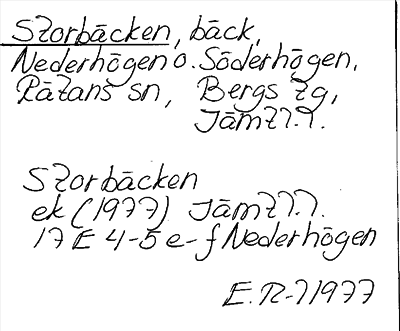 Storbäcken, bäck,
Nederhögen o. Söderhögen,
Rätans sn, Bergs tg,
Jämtl.
Storbäcken
ek (1977) Jämtl.
17 E 4-5 e-f Nederhögen
E.R-l 1977